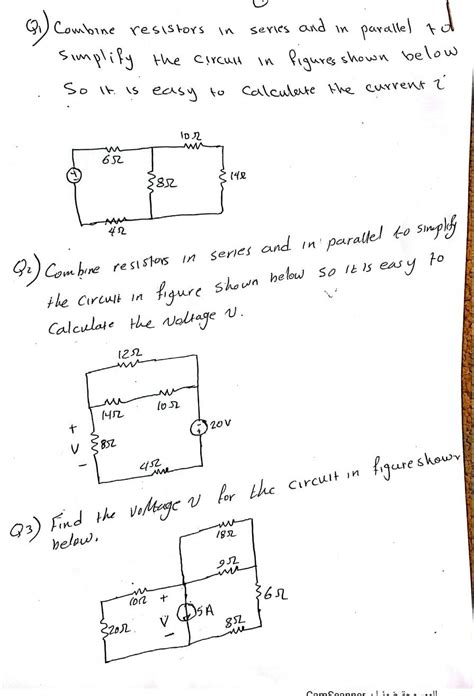 Q1) Combine resistors in series and in parallel to
simplify the circuit in figures shown below
So it is easy to calculate the current i
10Ω
6Ω
8Ω
14Ω
4Ω
Q2) Combine resistors in series and in parallel to simplify
the circuit in figure shown below so it is easy to
Calculate the voltage v.
12Ω
14Ω
10Ω
20V
+
V
-
8Ω
4Ω
Q3) Find the voltage v for the circuit in figure shown
below.
18Ω
9Ω
10Ω
+
V
-
5A
6Ω
20Ω
8Ω